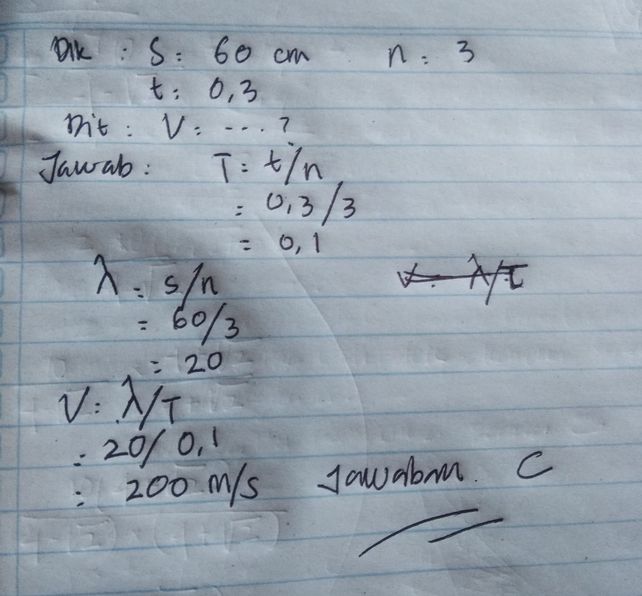 Dik : S : 60 cm n : 3
t : 0,3
Dit : V : .... ?
Jawab : T = t/n
= 0,3/3
= 0,1
λ = s/n
= 60/3
= 20
V = λ/T
: 20/0,1
: 200 m/s Jawaban C